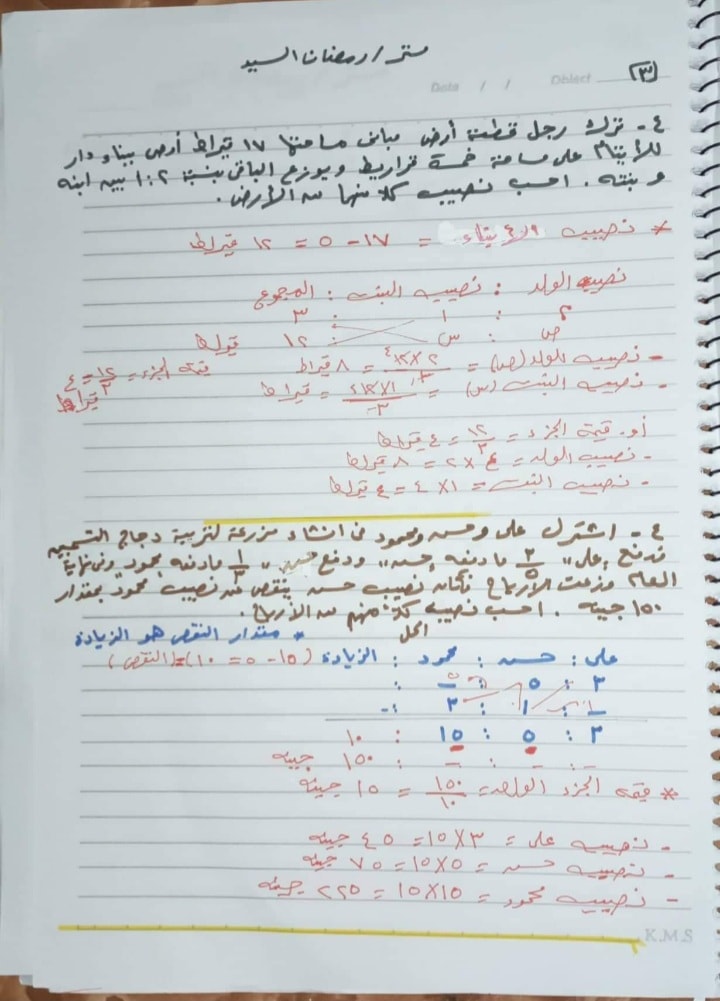 مستر / رمضان السيد
(٣)
Date / / Object
٤ - ترك رجل قطعة أرض مبانى مساحتها ١٧ قيراط أوصى ببناء دار
للأيتام على مساحة خمسة قراريط ويوزع الباقى بنسبة ٢ : ١ بين ابنه
وبنته . احسب نصيب كلاً منهما من الأرض .
* نصيب = ١٧ - ٥ = ١٢ قيراط
نصيب الولد : نصيب البنت : المجموع
٢ : ١ : ٣
ص : س : ١٢ قيراط
- نصيب الولد (ص) = ١٢×٢ / ٣ = ٨ قيراط قيمة الجزء = ١٢ / ٣ = ٤ قيراط
- نصيب البنت (س) = ١٢×١ / ٣ = قيراط
أو . قيمة الجزء = ١٢ / ٣ = ٤ قيراط
- نصيب الولد = ٤ × ٢ = ٨ قيراط
- نصيب البنت = ١ × ٤ = ٤ قيراط
٤ - اشترك على وحسن ومحمود فى انشاء مزرعة لتربية دجاج التسمين
فدفع "على" ٣/٥ مادفعه "حسن" ودفع حسن ١/٣ مادفعه محمود وفى نهاية
العام وزعت الأرباح فكان نصيب حسن ينقص عن نصيب محمود بمقدار
١٥٠ جنيه . احسب نصيب كلاً منهم من الأرباح .
الحل
* مقدار النقص هو الزيادة
على : حسن : محمود : الزيادة (١٥ - ٥ = ١٠) = (النقص)
٣ : ٥ : - :
- : ١ : ٣ : -
٣ : ٥ : ١٥ : ١٠
- : - : - : ١٥٠ جنيه
* قيمة الجزء الواحد = ١٥٠ / ١٠ = ١٥ جنيه
- نصيب على = ٣ × ١٥ = ٤٥ جنيه
- نصيب حسن = ٥ × ١٥ = ٧٥ جنيه
- نصيب محمود = ١٥ × ١٥ = ٢٢٥ جنيه
K.M.S